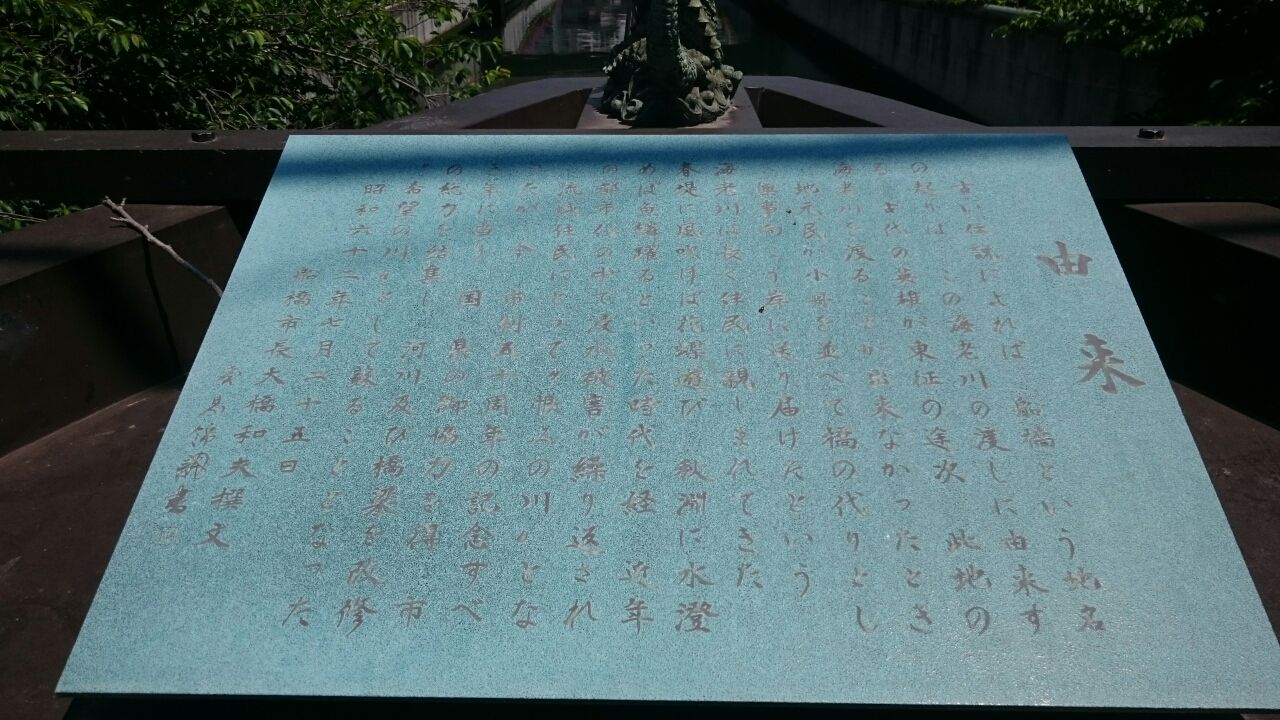 由来
古い伝説によれば 船橋という地名
の起りは この海老川の渡しに由来す
る 上代の英雄が東征の途次 此地の
海老川を渡ることが出来なかったとき
地元民が小舟を並べて橋の代りとし
無事向う岸に送り届けたという
海老川は長く住民に親しまれてきた
春堤に風吹けば花蝶遊び 秋淵に水澄
めば魚鱗躍るといった時代を経 近年
の都市化の中で浸水被害が繰り返され
流域住民にとって〃恨みの川〃とな
ったが 今 市制五十周年の記念すべ
き年に当り 国 県の御協力を得 市
の総力を結集し 河川及び橋梁を改修
〃希望の川〃として蘇ることとなった
昭和六十二年七月二十五日
船橋市長 大橋和夫 撰文
書